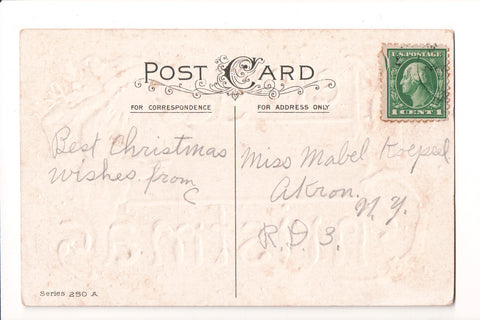 POST CARD
FOR CORRESPONDENCE
FOR ADDRESS ONLY
U.S. POSTAGE
1 CENT 1
Best Christmas
wishes from
C
Miss Mabel
Akron
N.Y.
R.D.3.
Christmas
Series 250 A